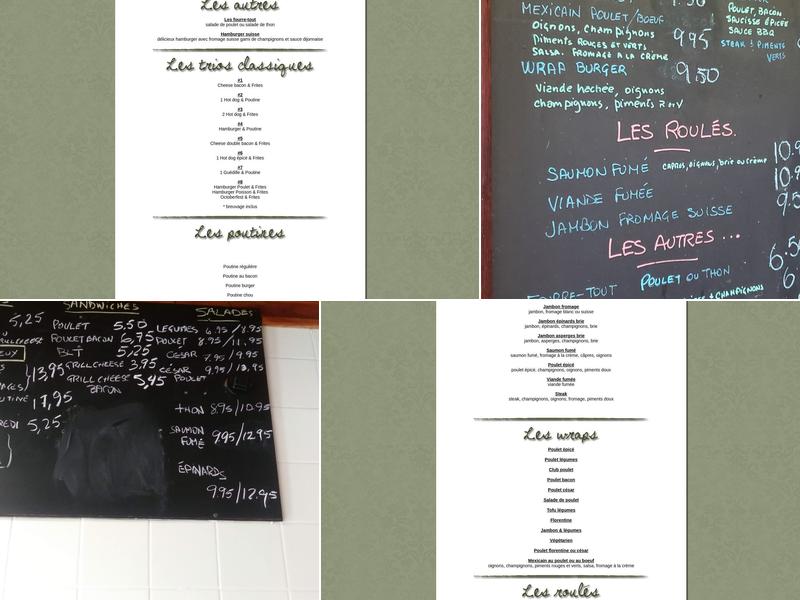 Les autres
Les fourre-tout
salade de poulet ou salade de thon
Hamburger suisse
délicieux hamburger avec fromage suisse garni de champignons et sauce dijonnaise
Les trios classiques
#1
Cheese bacon & Frites
#2
1 Hot dog & Poutine
#3
2 Hot dog & Frites
#4
Hamburger & Poutine
#5
Cheese double bacon & Frites
#6
1 Hot dog épicé & Frites
#7
1 Guédille & Poutine
#8
Hamburger Poulet & Frites
Hamburger Poisson & Frites
Octoberfest & Frites
* breuvage inclus
Les poutines
Poutine régulière
Poutine au bacon
Poutine burger
Poutine chou
MEXICAIN POULET/BOEUF
Oignons, champignons
piments ROUGES ET VERTS 9.95
SALSA. FROMAGE A LA CRÈME
WRAP BURGER 9.50
Viande hachée, oignons
champignons, piments R et V
POULET, BACON
SAUCISSE ÉPICÉE
SAUCE BBQ
STEAK & PIMENTS
VERTS
LES ROULÉS.
SAUMON FUMÉ CAPRES, oignons, brie ou crème
VIANDE FUMÉE
JAMBON FROMAGE SUISSE
LES AUTRES ...
FOURRE-TOUT POULET OU THON 6.5
SANDWICHES
5,25 POULET 5,50
POULET BACON 6,75
BLT 5,25
GRILL CHEESE 3,95
13,95 GRILL CHEESE 5,45
BACON
17,95
5,25
SALADES
LEGUMES 6.95/8.95
POULET 8.95/11,95
CESAR 7.95/9.95
CÉSAR 9.95/12,95
POULET
THON 8.75/10.95
SAUMON
FUMÉ 9.95/12.95
ÉPINARDS
9.95/12.95
Jambon fromage
jambon, fromage blanc ou suisse
Jambon épinards brie
jambon, épinards, champignons, brie
Jambon asperges brie
jambon, asperges, champignons, brie
Saumon fumé
saumon fumé, fromage à la crème, câpres, oignons
Poulet épicé
poulet épicé, champignons, oignons, piments doux
Viande fumée
viande fumée
Steak
steak, champignons, oignons, fromage, piments doux
Les wraps
Poulet épicé
Poulet légumes
Club poulet
Poulet bacon
Poulet césar
Salade de poulet
Tofu légumes
Florentine
Jambon & légumes
Végétarien
Poulet florentine ou césar
Mexicain au poulet ou au boeuf
oignons, champignons, piments rouges et verts, salsa, fromage à la crème
Les roulés